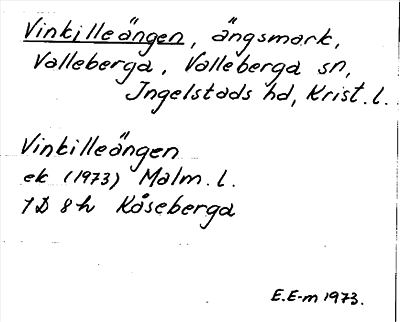 Vinkilleängen, ängsmark,
Valleberga, Valleberga sn,
Ingelstads hd, Krist. l.
Vinkilleängen
ek (1973) Malm. l.
1D 8h Kåseberga
E.E-m 1973.